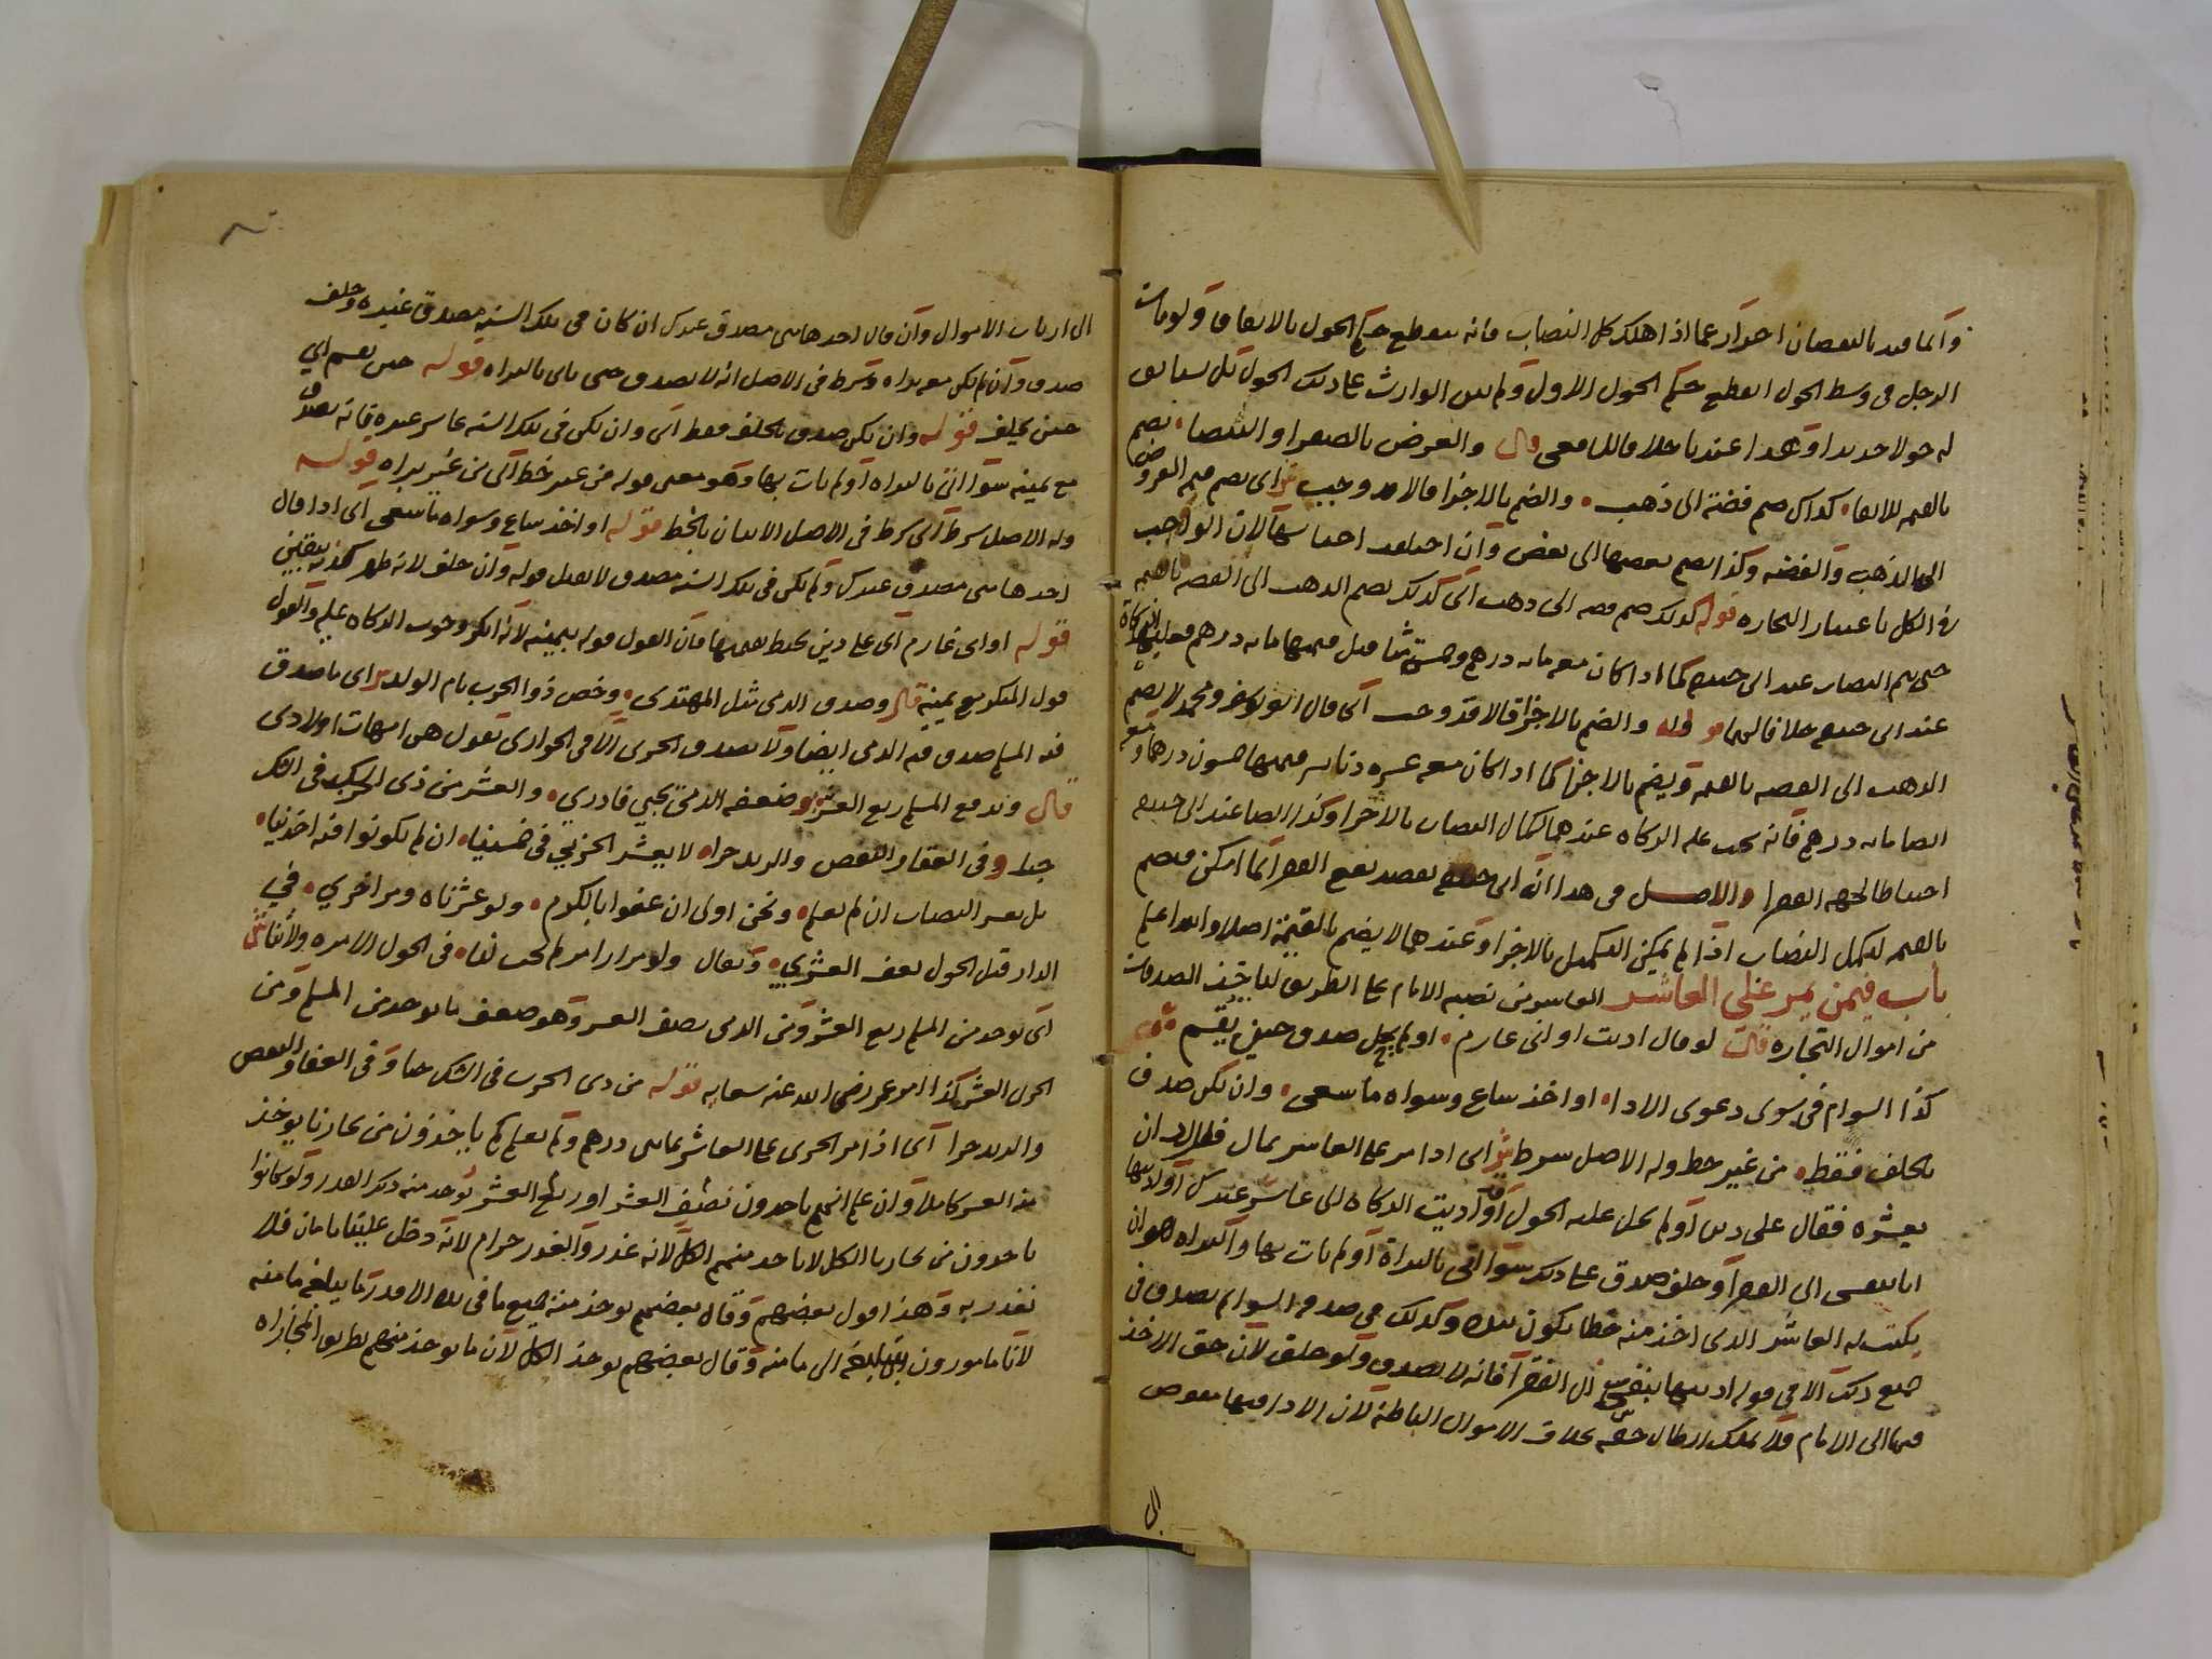 وانما قيد بالنقصان احتراز عما اذا هلك كل النصاب فانه ينقطع حكم الحول بالاتفاق ولو مات
الرجل في وسط الحول انقطع حكم الحول الاول ولم يبن الوارث على ذلك الحول بل يستانف
له حولا جديدا وهذا عندنا خلافا للشافعي قال والعرض بالصفرا والبيضا يضم
بالقيمة للايفا كذاك ضم فضة الى ذهب والضم بالاجزا قالا قد وجب ش اي يضم قيم العروض
الى الذهب والفضة وكذا يضم بعضها الى بعض وان اختلفت اجناسها لان الواجب
في الكل باعتبار التجارة قوله كذلك ضم فضة الى ذهب اي كذلك يضم الذهب الى الفضة بالقيمة
حتى يتم النصاب عند ابي حنيفة كما اذا كان معه مائة درهم وخمسة مثاقيل قيمتها مائة درهم فعليه الزكاة
عند ابي حنيفة خلافا لهما قوله والضم بالاجزا قالا قد وجب اي قال ابو يوسف ومحمد لا يضم
الذهب الى الفضة بالقيمة ويضم بالاجزا كما اذا كان معه عشرة دنانير قيمتها خمسون درهما ومعه
ايضا مائة درهم فانه يجب عليه الزكاة عندهما لكمال النصاب بالاجزا وكذا ايضا عند ابي حنيفة
احتياطا لجهة الفقرا والاصل في هذا ان ابي حنيفة يقصد نفع الفقرا كما امكن فيضم
بالقيمة لتكميل النصاب اذا لم يمكن التكميل بالاجزا وعندهما لا يضم بالقيمة اصلا والله اعلم
باب فيمن يمر على العاشر العاشر من نصبه الامام على الطريق لياخذ الصدقات
من اموال التجارة قال لو قال اديت او اني غارم او لم يحل صدق حين يقسم
كذا السوام في سوى دعوى الادا او اخذ ساع وسواه ما سعى وان يكن صدق
بحلف فقط من غير خط وله الاصل شرط ش اي اذا مر على العاشر بمال فاراد ان
يعشره فقال علي دين او لم يحل عليه الحول او اديت الزكاة الى عاشر عندك او اديتها
انا بنفسي الى الفقرا وحلف صدق على ذلك سوا اتى بالبراة او لم يات بها والبراة هو ان
يكتب له العاشر الذي اخذ منه خطا يكون بيده وكذلك في صدقة السوايم يصدق في
جميع ذلك الا في قوله اديتها بنفسي الى الفقرا فانه لا يصدق ولو حلف لان حق الاخذ
فيها الى الامام فلا يملك ابطال حقه بخلاف الاموال الباطنة لان الادا فيها مفوض
الى
الى ارباب الاموال وان قال احدها مني مصدق عندك ان كان في تلك السنة مصدق غيره وحلف
صدق وان لم يكن معه براه وشرط في الاصل انه لا يصدق حتى ياتي بالبراه قوله حين يقسم اي
حين يحلف قوله وان يكن صدق بحلف فقط اي وان يكن في تلك السنة عاشر غيره فانه يصدق
مع يمينه سوا اتى بالبراه او لم يات بها وهو معنى قوله من غير خط اي من غير براه قوله
وله الاصل شرط اي شرط في الاصل الاتيان بالخط قوله او اخذ ساع وسواه ما سعى اي اذا قال
احدها مني مصدق عندك ولم يكن في تلك السنة مصدق لا يقبل قوله وان حلف لانه ظهر كذبه بيقين
قوله او اني غارم اي علي دين يحيط بقيمتها فان القول قوله بيمينه لانه انكر وجوب الزكاه عليه والقول
قول المنكر مع يمينه قال وصدق الذمي مثل المهتدي وخص ذو الحرب بام الولد ش اي ما صدق
فيه المسلم صدق فيه الذمي ايضا ولا يصدق الحربي الا في الجواري يقول هن امهات اولادي
قال ويدفع المسلم ربع العشر وضعفه الذمي يحيي قادري والعشر من ذي الحرب في الشك
جبا وفي العقار والنقص والزيد جرا لا يعشر الحربي في خمسينا ان لم يكونوا فيه اخذينا
بل يعشر النصاب ان لم يعلم ونحن اولى ان عفوا بالكرم ولو عشرناه ومر اخرى في
الدار قبل الحول يعف العشري ويقال ولو مرارا مر لم يجب لنا في الحول الا مره ولا ثنا ش
اي يوخذ من المسلم ربع العشر ومن الذمي نصف العشر وهو ضعف ما يوخذ من المسلم ومن
الحربي العشر كذا امر عمر رضي الله عنه سعاته قوله من ذي الحرب في الشك جبا وفي العقار والنقص
والزيد جرا اي اذا مر الحربي على العاشر بمائتي درهم ولم يعلم كم ياخذون من تجارنا يوخذ
منه العشر كاملا وان علم انهم ياخذون نصف العشر او ربع العشر يوخذ منه ذلك القدر ولو كانوا
ياخذون من تجارنا الكل لا ياخذ منهم الكل لانه غدر والغدر حرام لانه دخل علينا بامان فلا
نغدر به وهذا قول بعضهم وقال بعضهم يوخذ منه جميع ما في يده الا قدر ما يبلغه مامنه
لانا مامورون بتبليغه الى مامنه وقال بعضهم يوخذ الكل لان ما يوخذ منهم بطريق المجازاه